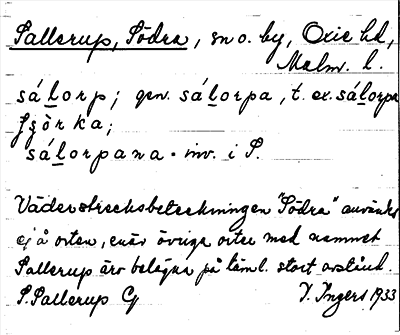 Sallerup, Södra, sn o. by, Oxie hd,
Malm. l.
sálorp; gen. sálorpa, t. ex. sálorpa
sórka;
sálorpana. inv. i S.
Väderstrecksbeteckningen "Södra" användes
ej å orten, enär övriga orter med namnet
Sallerup äro belägna på täml. stort avstånd.
S. Sallerup G I. Ingers 1933